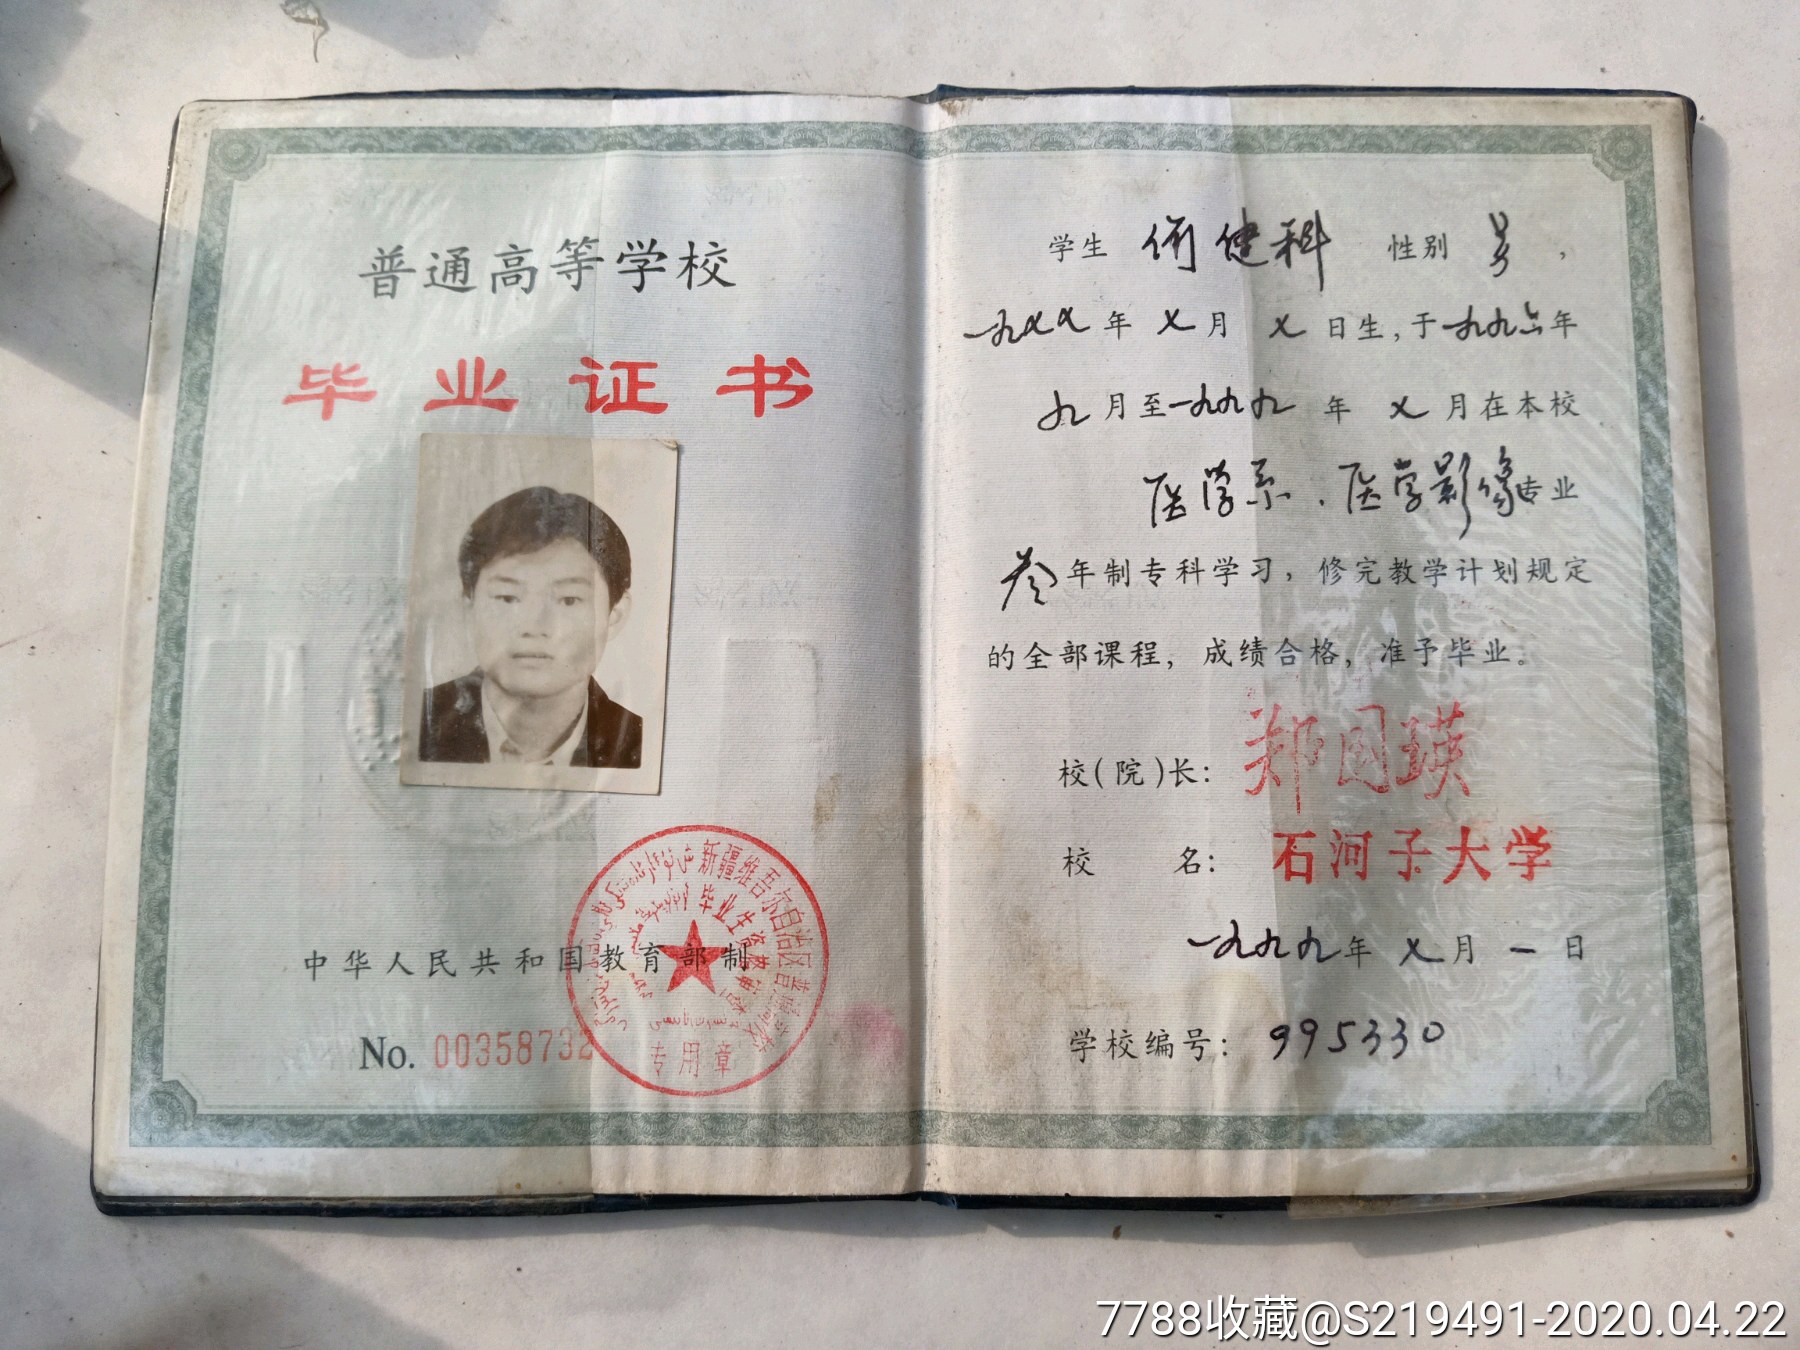 普通高等学校
毕业证书
中华人民共和国教育部制
No. 00358732
新疆维吾尔自治区普通高校
毕业生资格审查
专用章
学生 健科 性别 男,
一九七七年 七月 七日生,于一九九六年
九月至一九九九年 七月在本校
医学系.医学影像专业
叁年制专科学习,修完教学计划规定
的全部课程,成绩合格,准予毕业。
校(院)长: 郑国瑛
校 名: 石河子大学
一九九九年 七月 一日
学校编号: 995330
7788收藏@S219491-2020.04.22